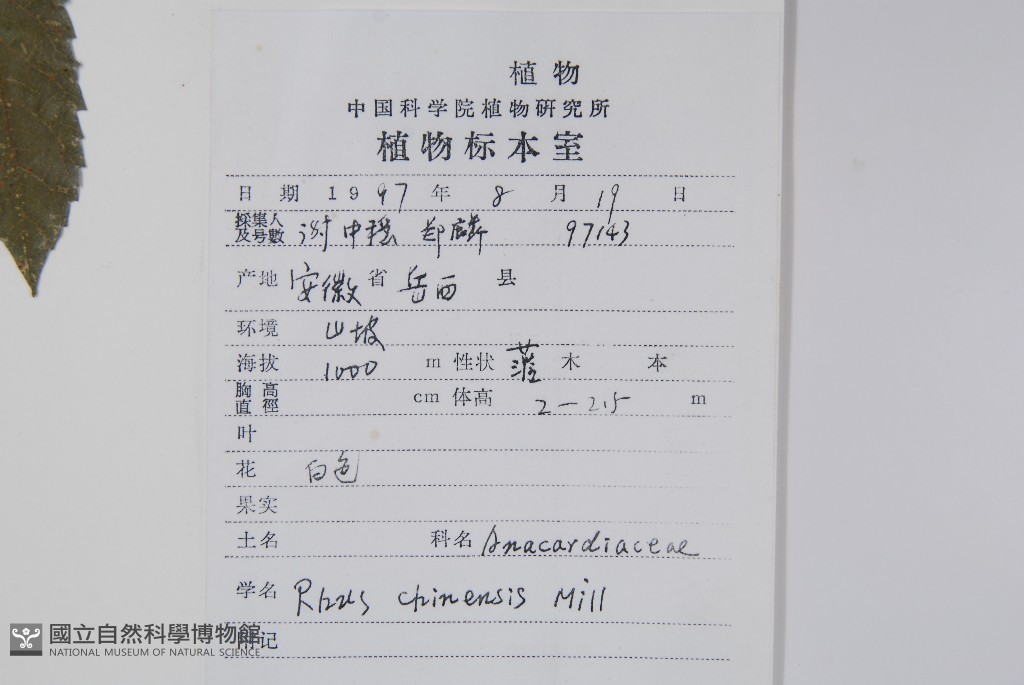 植物
中国科学院植物研究所
植物标本室
日 期 1997 年 8 月 19 日
採集人及号數 谢中稳 郑麟 97143
产地 安徽 省 岳西 县
环境 山坡
海拔 1000 m 性状 灌 木 本
胸高直徑 cm 体高 2—2.5 m
叶
花 白色
果实
土名 科名 Anacardiaceae
学名 Rhus chinensis Mill
附记
國立自然科學博物館
NATIONAL MUSEUM OF NATURAL SCIENCE